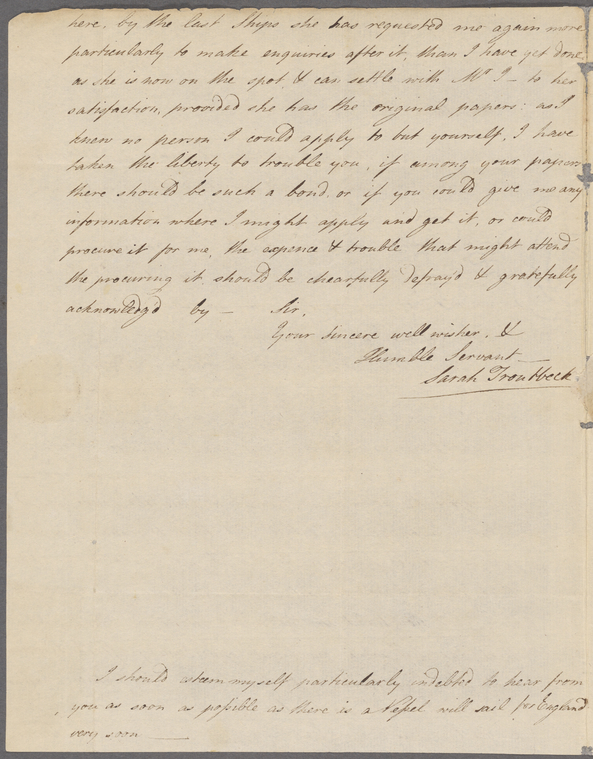 here, by the last Ships she has requested me again more
particularly to make enquiries after it, than I have yet done,
as she is now on the spot, & can settle with Mr J— to her
satisfaction, provided she has the original papers: as I
know no person I could apply to but yourself, I have
taken the liberty to trouble you, if among your papers
there should be such a bond, or if you could give me any
information where I might apply and get it, or could
procure it for me, the expence & trouble that might attend
the procuring it, should be chearfully defray'd & gratefully
acknowledg'd by — Sir,
Your sincere well wisher, &
Humble Servant —
Sarah Troutbeck
I should esteem myself particularly indebted to hear from
you as soon as possible as there is a Vessel will sail for England
very soon —